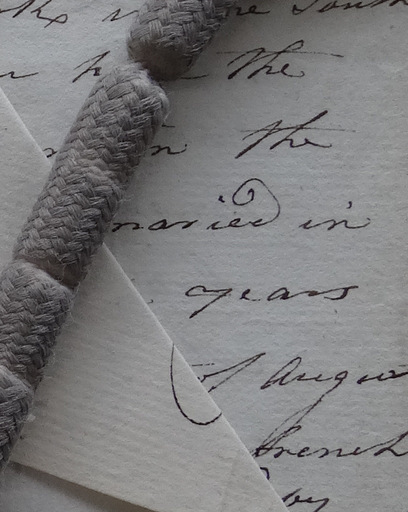 the South
the
in the
maried in
years
of Augus
french
by